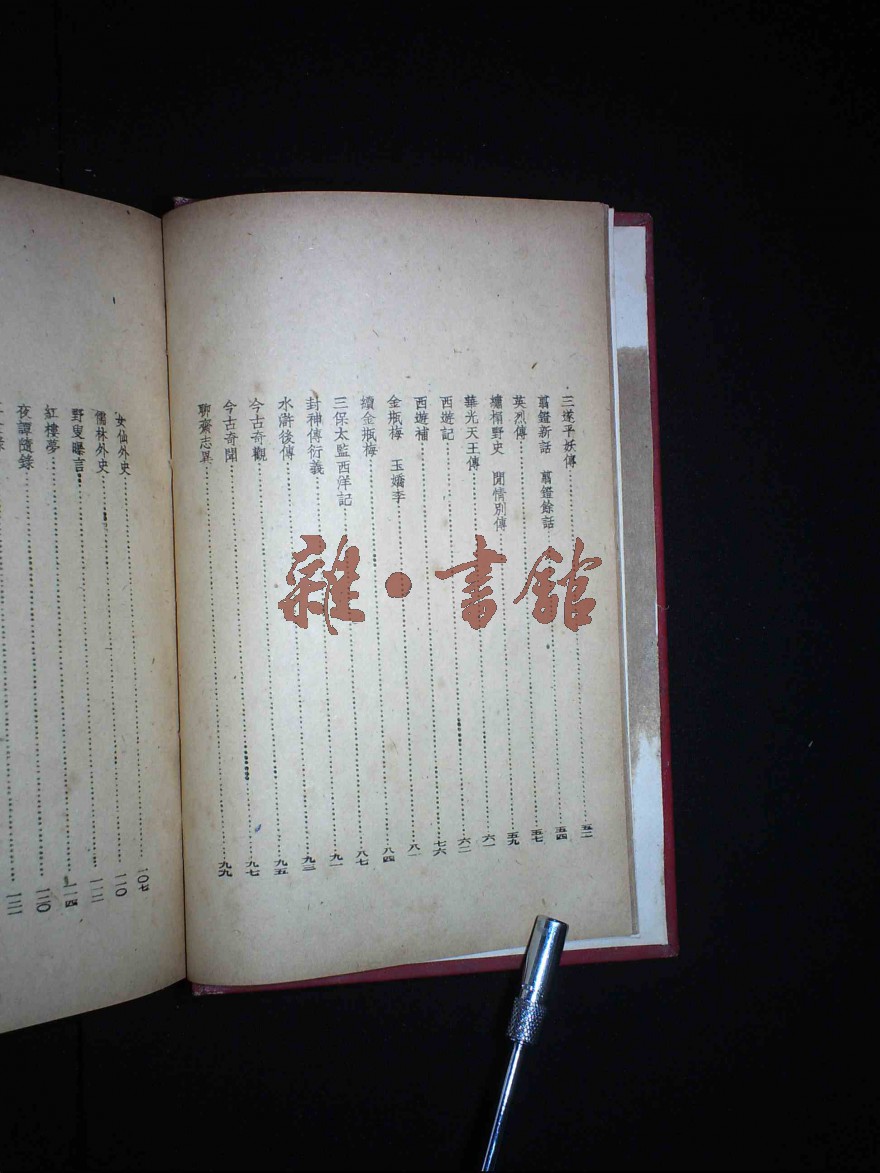 三遂平妖傳 五二
翦鐙新話 翦鐙餘話 五四
英烈傳 五七
繡榻野史 閒情別傳 五九
華光天王傳 六一
西遊記 六二
西遊補 七六
金瓶梅 玉嬌李 八一
續金瓶梅 八四
三保太監西洋記 八七
封神傳衍義 九一
水滸後傳 九三
今古奇觀 九五
今古奇聞 九七
聊齋志異 九九
女仙外史 一〇七
儒林外史 一一〇
野叟曝言 一一二
紅樓夢 一一四
夜譚隨錄 一二〇
雜·書館